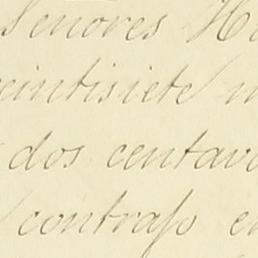 Señores
eintisiete
dos centavo
contrato e